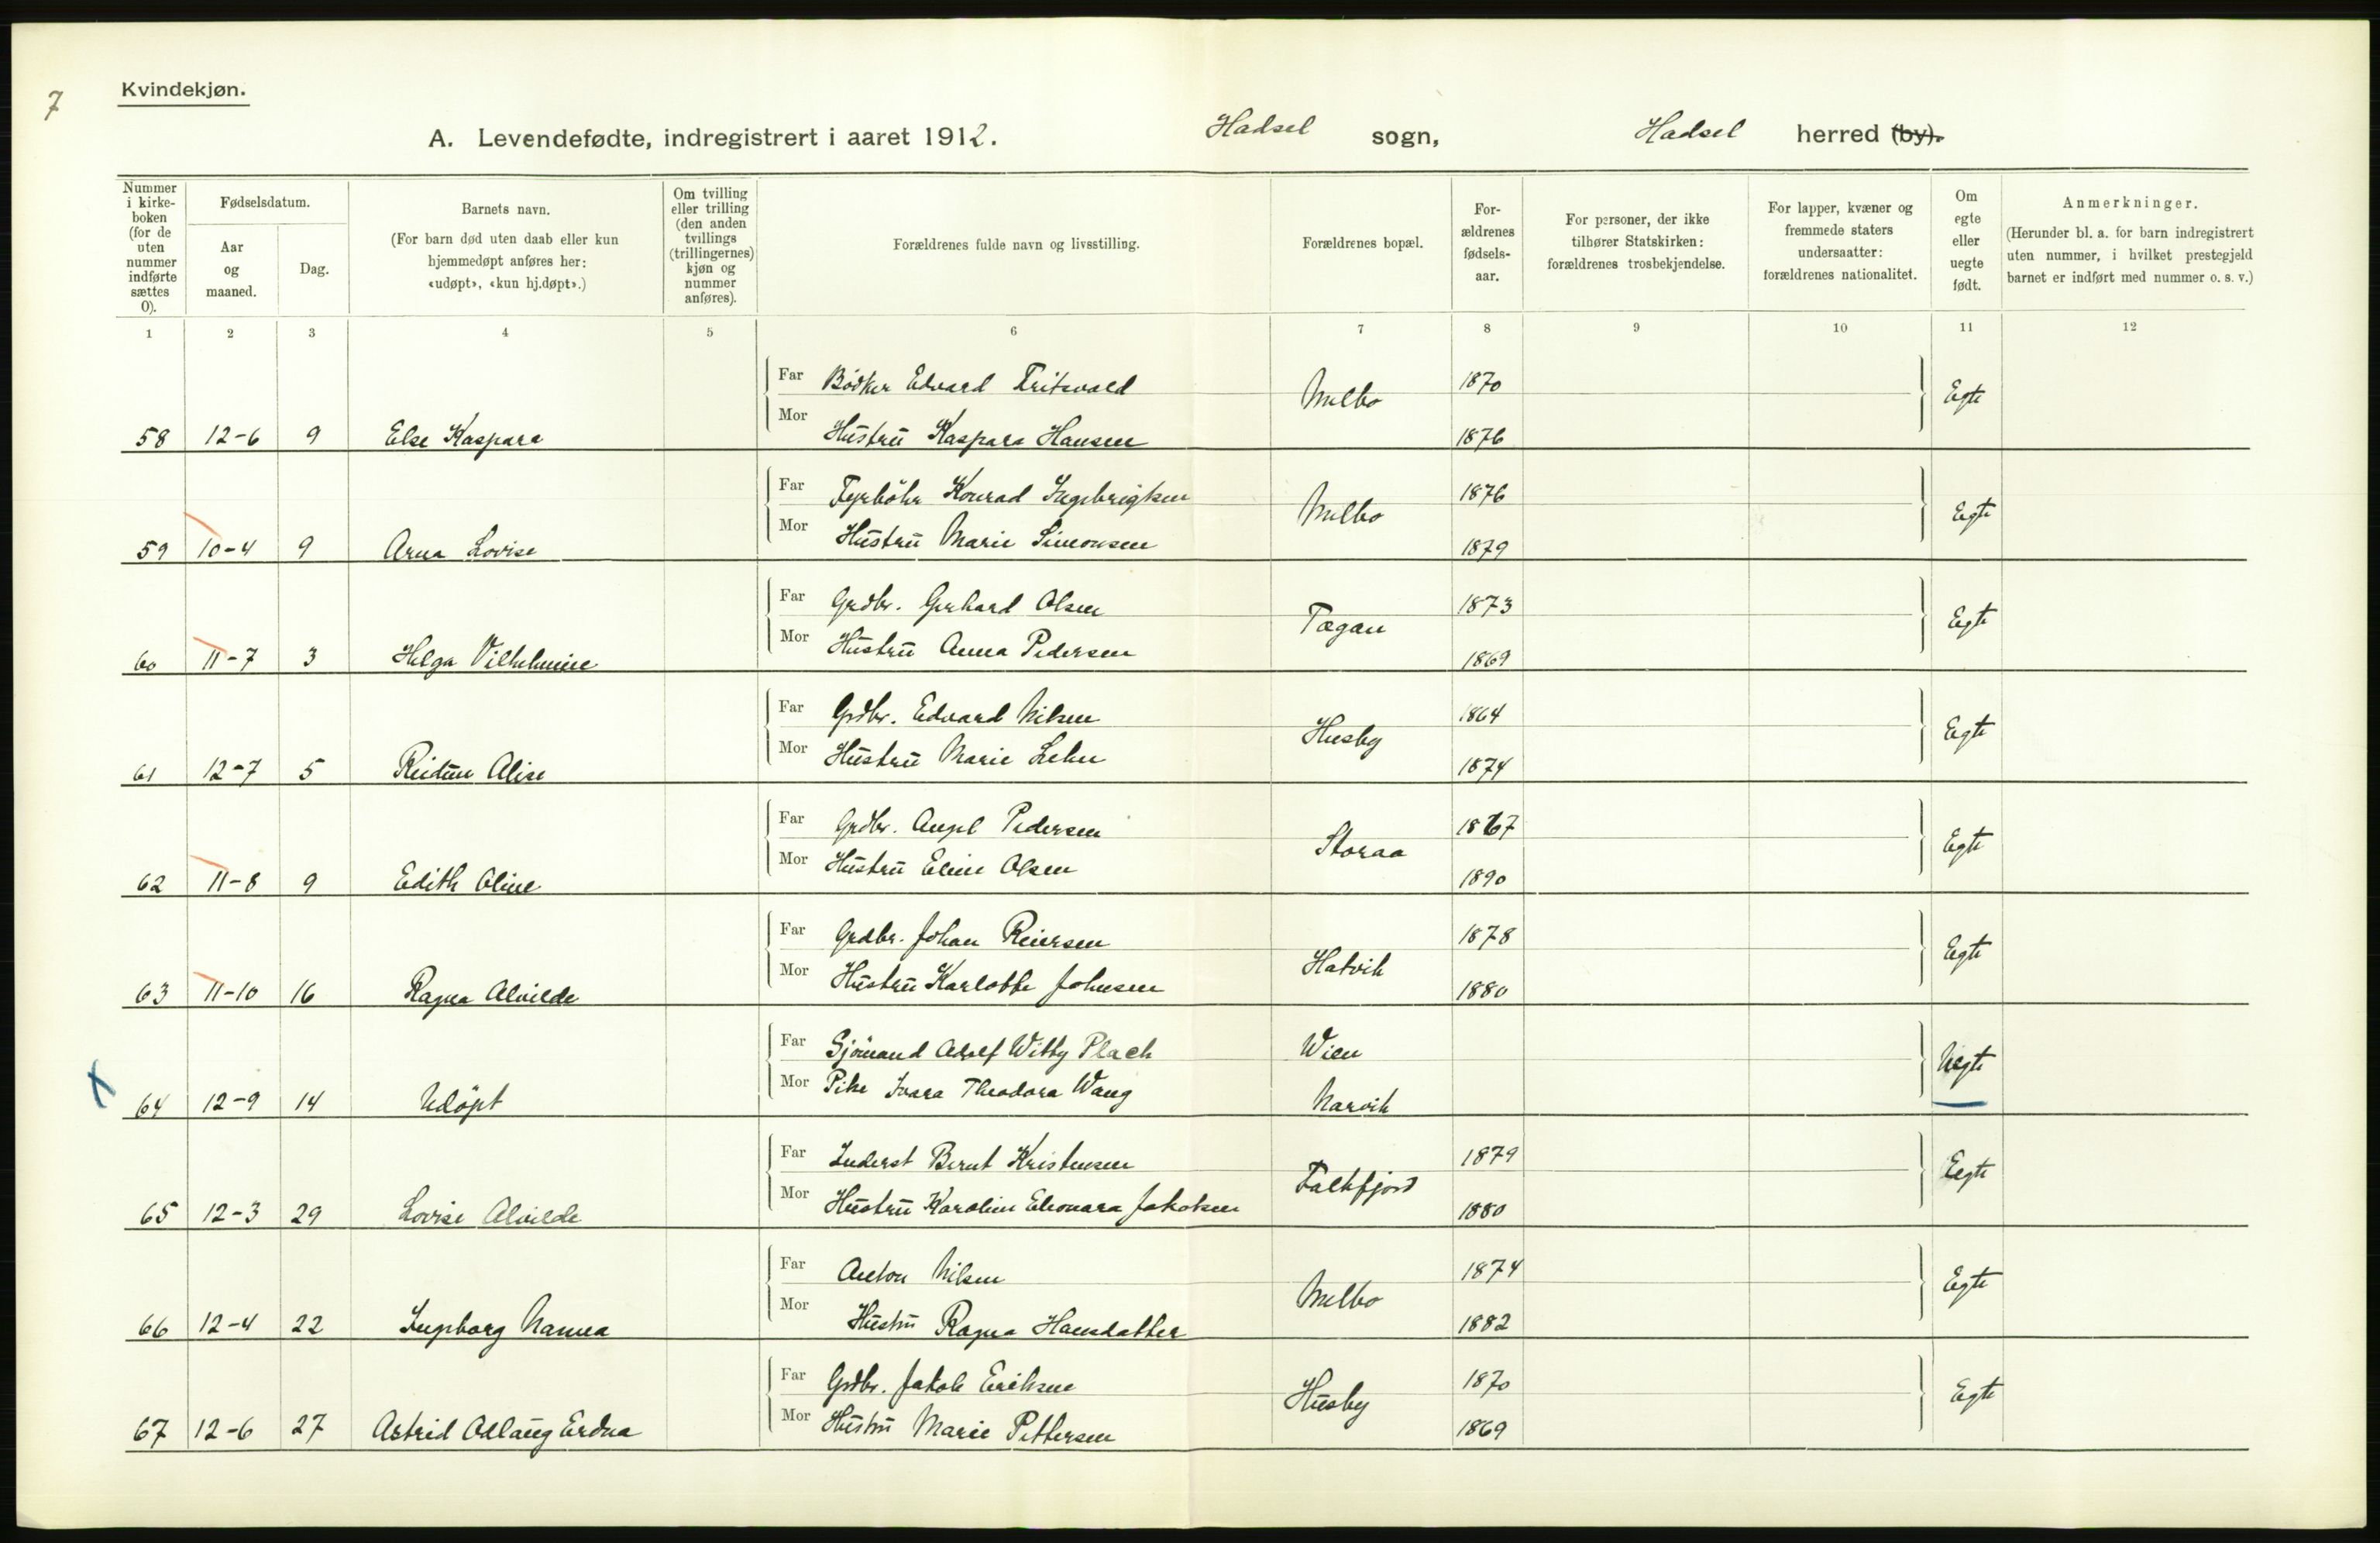 7
Kvindekjøn.
A. Levendefødte, indregistrert i aaret 1912. Hadsel sogn, Hadsel herred (by).
Nummer i kirke-boken (for de uten nummer indførte sættes 0).
Fødselsdatum.
Aar og maaned.
Dag.
Barnets navn.
(For barn død uten daab eller kun hjemmedøpt anføres her: «udøpt», «kun hj.døpt».)
Om tvilling eller trilling (den anden tvillings (trillingernes) kjøn og nummer anføres).
Forældrenes fulde navn og livsstilling.
Forældrenes bopæl.
For-ældrenes fødsels-aar.
For personer, der ikke tilhører Statskirken: forældrenes trosbekjendelse.
For lapper, kvæner og fremmede staters undersaatter: forældrenes nationalitet.
Om egte eller uegte født.
Anmerkninger.
(Herunder bl. a. for barn indregistrert uten nummer, i hvilket prestegjeld barnet er indført med nummer o. s. v.)
1 2 3 4 5 6 7 8 9 10 11 12
Far Bödker Edvard Fritsvold Melbo 1870 Egte
58 12-6 9 Else Kaspara Mor Hustru Kaspara Hansen 1876
Far Fyrböter Konrad Ingebrigtsen Melbo 1876 Egte
59 10-4 9 Arna Lovise Mor Hustru Marie Simonsen 1879
Far Grdbr. Gerhard Olsen 1873 Egte
60 11-7 3 Helga Vilhelmine Mor Hustru Anna Pedersen 1869
Far Grdbr. Edvard Nilsen Husby 1864 Egte
61 12-7 5 Reidun Alise Mor Hustru Marie Lehn 1874
Far Grdbr. Angel Pedersen Storaa 1867 Egte
62 11-8 9 Edith Oline Mor Hustru Eline Olsen 1890
Far Grdbr. Johan Reiersen Hatvik 1878 Egte
63 11-10 16 Ragna Alvilde Mor Hustru Karlotte Johnsen 1880
Far Sjömand Adolf Witty Plach Wien Uegte
64 12-9 14 Udöpt Mor Pike Ivara Theodora Wang Narvik
Far Inderst Bernt Kristensen Falkfjord 1879 Egte
65 12-3 29 Lovise Alvilde Mor Hustru Karoline Eleonara Jakobsen 1880
Far Anton Nilsen Melbo 1874 Egte
66 12-4 22 Ingeborg Nanna Mor Hustru Ragna Hansdatter 1882
Far Grdbr. Jakob Eriksen Husby 1870 Egte
67 12-6 27 Astrid Odlaug Erdna Mor Hustru Marie Pettersen 1869